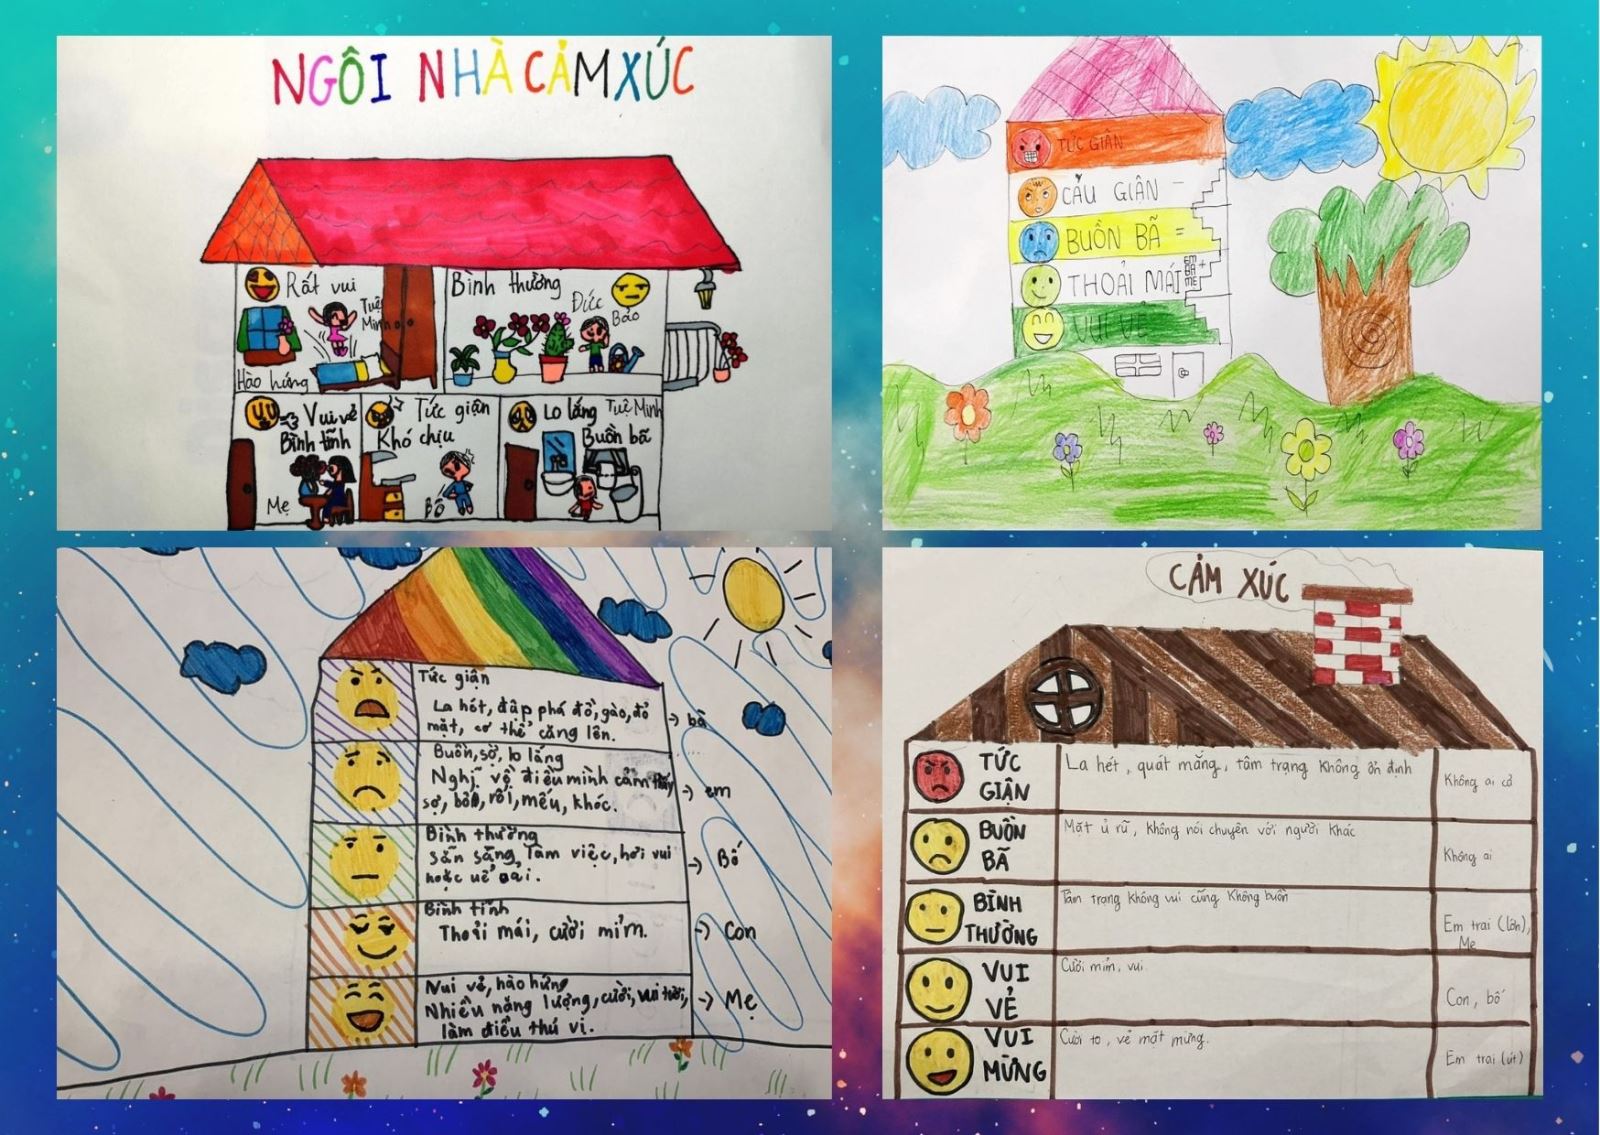 NGÔI NHÀ CẢM XÚC
Rất vui
Tuệ
Minh
Hào hứng
Bình thường
Đức
Bảo
Vui vẻ
Bình tĩnh
Mẹ
Tức giận
Khó chịu
Bố
Lo lắng Tuệ Minh
Buồn bã
TỨC GIẬN
CẨU GIẬN –
BUỒN BÃ =
THOẢI MÁI
EM
BA
MẸ
+
VUI VẺ
Tức giận
La hét, đập phá đồ, gào, đỏ
mặt, cơ thể căng lên.
→ bà
Buồn, sợ, lo lắng
Nghĩ về điều mình cảm thấy
sợ, bối rối, mếu, khóc.
→ em
Bình thường
sẵn sàng, làm việc, hơi vui
hoặc uể oải.
→ Bố
Bình tĩnh
Thoải mái, cười mỉm.
→ Con
Vui vẻ, hào hứng
Nhiều năng lượng, cười, vui tươi,
làm điều thú vị.
→ Mẹ
CẢM XÚC
TỨC
GIẬN
La hét, quát mắng, tâm trạng không ổn định
Không ai cả
BUỒN
BÃ
Mặt ủ rũ, không nói chuyện với người khác
Không ai
BÌNH
THƯỜNG
Tâm trạng không vui cũng không buồn
Em trai (lớn),
Mẹ
VUI
VẺ
Cười mỉm, vui.
Con, bố
VUI
MỪNG
Cười to, vẻ mặt mừng.
Em trai (út)